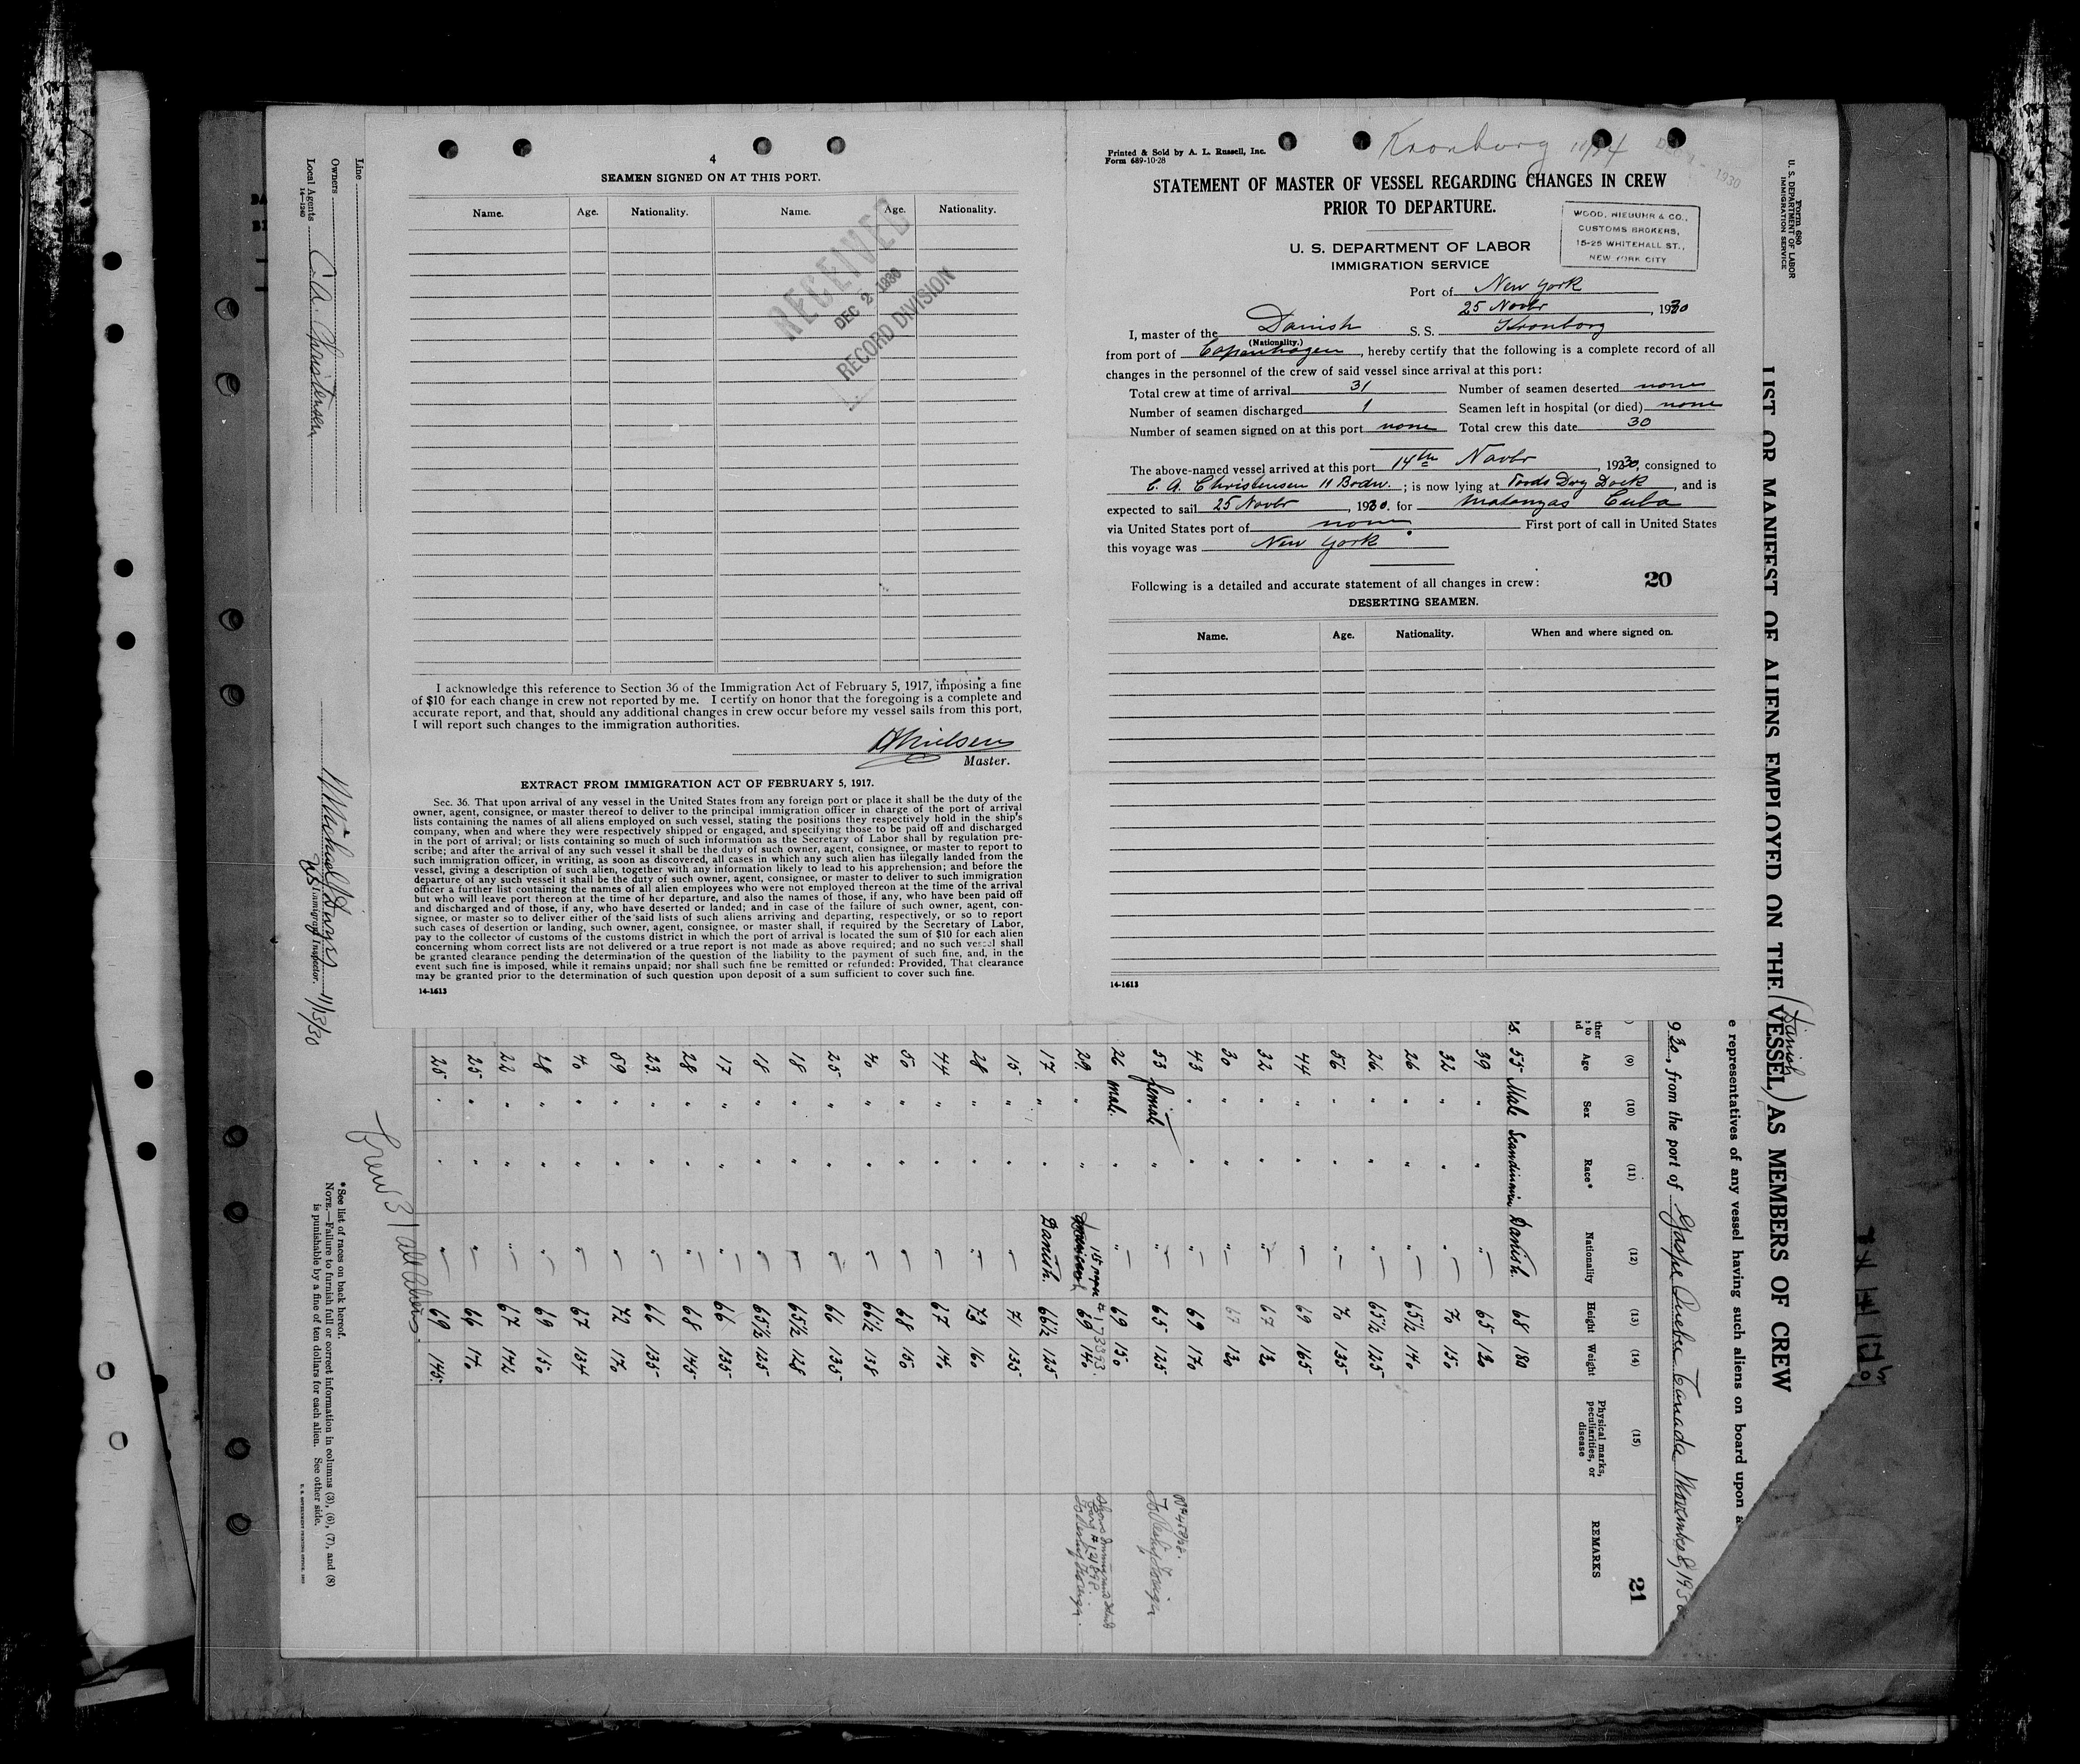 4
SEAMEN SIGNED ON AT THIS PORT.
Name. Age. Nationality. Name. Age. Nationality.
RECEIVED
DEC 2 1930
RECORD DIVISION
I acknowledge this reference to Section 36 of the Immigration Act of February 5, 1917, imposing a fine
of $10 for each change in crew not reported by me. I certify on honor that the foregoing is a complete and
accurate report, and that, should any additional changes in crew occur before my vessel sails from this port,
I will report such changes to the immigration authorities.
Nielsen
Master.
EXTRACT FROM IMMIGRATION ACT OF FEBRUARY 5, 1917.
Sec. 36. That upon arrival of any vessel in the United States from any foreign port or place it shall be the duty of the
owner, agent, consignee, or master thereof to deliver to the principal immigration officer in charge of the port of arrival
lists containing the names of all aliens employed on such vessel, stating the positions they respectively hold in the ship's
company, when and where they were respectively shipped or engaged, and specifying those to be paid off and discharged
in the port of arrival; or lists containing so much of such information as the Secretary of Labor shall by regulation pre-
scribe; and after the arrival of any such vessel it shall be the duty of such owner, agent, consignee, or master to report to
such immigration officer, in writing, as soon as discovered, all cases in which any such alien has illegally landed from the
vessel, giving a description of such alien, together with any information likely to lead to his apprehension; and before the
departure of any such vessel it shall be the duty of such owner, agent, consignee, or master to deliver to such immigration
officer a further list containing the names of all alien employees who were not employed thereon at the time of the arrival
but who will leave port thereon at the time of her departure, and also the names of those, if any, who have been paid off
and discharged and of those, if any, who have deserted or landed; and in case of the failure of such owner, agent, con-
signee, or master so to deliver either of the said lists of such aliens arriving and departing, respectively, or so to report
such cases of desertion or landing, such owner, agent, consignee, or master shall, if required by the Secretary of Labor,
pay to the collector of customs of the customs district in which the port of arrival is located the sum of $10 for each alien
concerning whom correct lists are not delivered or a true report is not made as above required; and no such vessel shall
be granted clearance pending the determination of the question of the liability to the payment of such fine, and, in the
event such fine is imposed, while it remains unpaid; nor shall such fine be remitted or refunded: Provided, That clearance
may be granted prior to the determination of such question upon deposit of a sum sufficient to cover such fine.
14-1613
Kronborg 11/14 DEC 1930
Printed & Sold by A. L. Russell, Inc.
Form 689-10-28
STATEMENT OF MASTER OF VESSEL REGARDING CHANGES IN CREW
PRIOR TO DEPARTURE.
WOOD, NIEBUHR & CO.,
CUSTOMS BROKERS,
15-25 WHITEHALL ST.,
NEW YORK CITY
U. S. DEPARTMENT OF LABOR
IMMIGRATION SERVICE
Port of New York
25 Novbr, 1930
I, master of the Danish S. S. Kronborg
(Nationality.)
from port of Copenhagen, hereby certify that the following is a complete record of all
changes in the personnel of the crew of said vessel since arrival at this port:
Total crew at time of arrival 31 Number of seamen deserted none
Number of seamen discharged 1 Seamen left in hospital (or died) none
Number of seamen signed on at this port none Total crew this date 30
The above-named vessel arrived at this port 14th Novbr, 1930, consigned to
C. A. Christensen 11 Bodw.; is now lying at Todds Dry Dock, and is
expected to sail 25 Novbr, 1930. for Matanzas Cuba
via United States port of none First port of call in United States
this voyage was New York
Following is a detailed and accurate statement of all changes in crew: 20
DESERTING SEAMEN.
Name. Age. Nationality. When and where signed on.
14-1613
Form 680
U. S. DEPARTMENT OF LABOR
IMMIGRATION SERVICE
LIST OR MANIFEST OF ALIENS EMPLOYED ON THE (Danish VESSEL) AS MEMBERS OF CREW
e representatives of any vessel having such aliens on board upon a
9 30, from the port of Gaspe Quebec Canada November 8, 1930
21
(9) (10) (11) (12) (13) (14) (15)
Age Sex Race* Nationality Height Weight Physical marks, peculiarities, or disease REMARKS
55 Male Scandinavian Danish. 68 180
39 " " " 65 130
32 " " " 70 150
26 " " " 65½ 140
26 " " " 65½ 125
56 " " " 70 135
44 " " " 69 165
32 " " " 67 130
30 " " " 67 130
43 " " " 69 170
53 female " " 65 125
26 male. " " 69 150
29. " " 69 140
17 " " Danish. 66½ 125
15 " " " 71 135
28 " " " 73 160
44 " " " 67 140
50 " " " 68 150
40 " " " 66½ 138
25 " " " 66 135
18 " " " 65½ 128
18 " " " 65½ 125
17 " " " 66 135
28 " " " 68 145
23. " " " 66 135
59 " " " 72 170
40 " " " 67 134
28 " " " 69 150
22 " " " 67 142
25 " " " 66 170
25 " " " 69 145.
Crew 31 all aliens.
Line
Owners
Local Agents C. A. Christensen
14-1240
Immigrant Inspector.
11/13/30
*See list of races on back hereof.
NOTE.—Failure to furnish full or correct information in columns (3), (6), (7), and (8)
is punishable by a fine of ten dollars for each alien. See other side.
U. S. GOVERNMENT PRINTING OFFICE